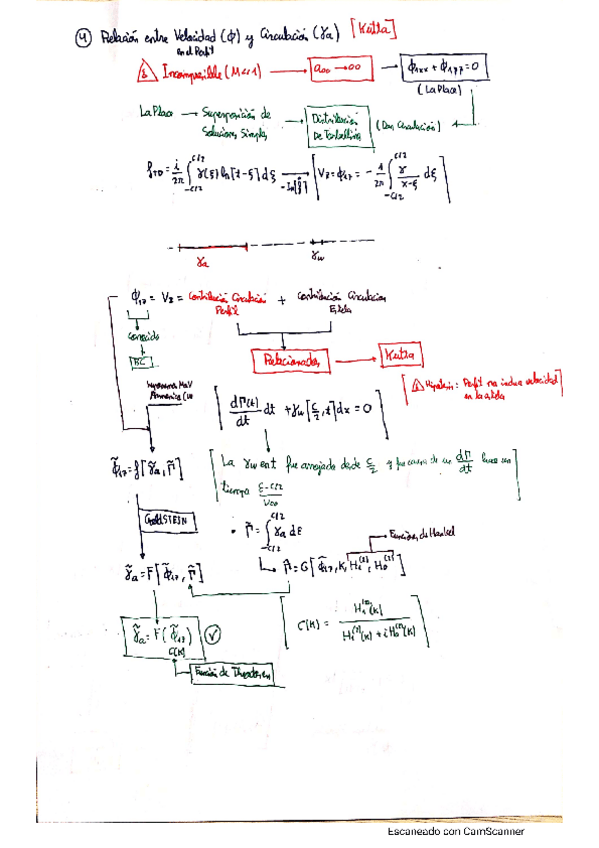 ④ Relación entre Velocidad (ϕ) y Circulación (γa) [Kutta]
en el Perfil
Incompresible (M<<1) → a∞ → ∞ → ϕ1xx + ϕ1zz = 0
(Laplace)
Laplace → Superposición de Soluciones Simples → Distribución De Torbellinos (Dan Circulación)
f(z) = i/2π ∫_{-c/2}^{c/2} γ(ξ) ln[z-ξ] dξ → [Vz = ϕ1z = - 1/2π ∫_{-c/2}^{c/2} γ/(x-ξ) dξ]
γa γw
ϕ1z = Vz = Contribución Circulación Perfil + Contribución Circulación Estela
Conocido
BC
Relacionados → Kutta
[Hipótesis: Perfil no induce velocidad en la estela]
[dΓ(t)/dt dt + γw[c/2,t] dx = 0]
ϕ̃1z = f[γ̃a, Γ̃]
[La γw en t fue arrojada desde c/2 y fue causa de un dΓ/dt hace un tiempo (ξ-c/2)/V∞]
GoldSTEIN
• Γ̃ = ∫_{-c/2}^{c/2} γ̃a dξ
Función de Hankel
γ̃a = F[ϕ̃1z, Γ̃]
Γ̃ = G[ϕ̃1z, K, H1^(2), H0^(2)]
[C(K) = H1^(2)(K) / (H1^(2)(K) + i H0^(2)(K))]
γ̃a = F(ϕ̃1z)
C(K)
Función de Theodorsen
Escaneado con CamScanner